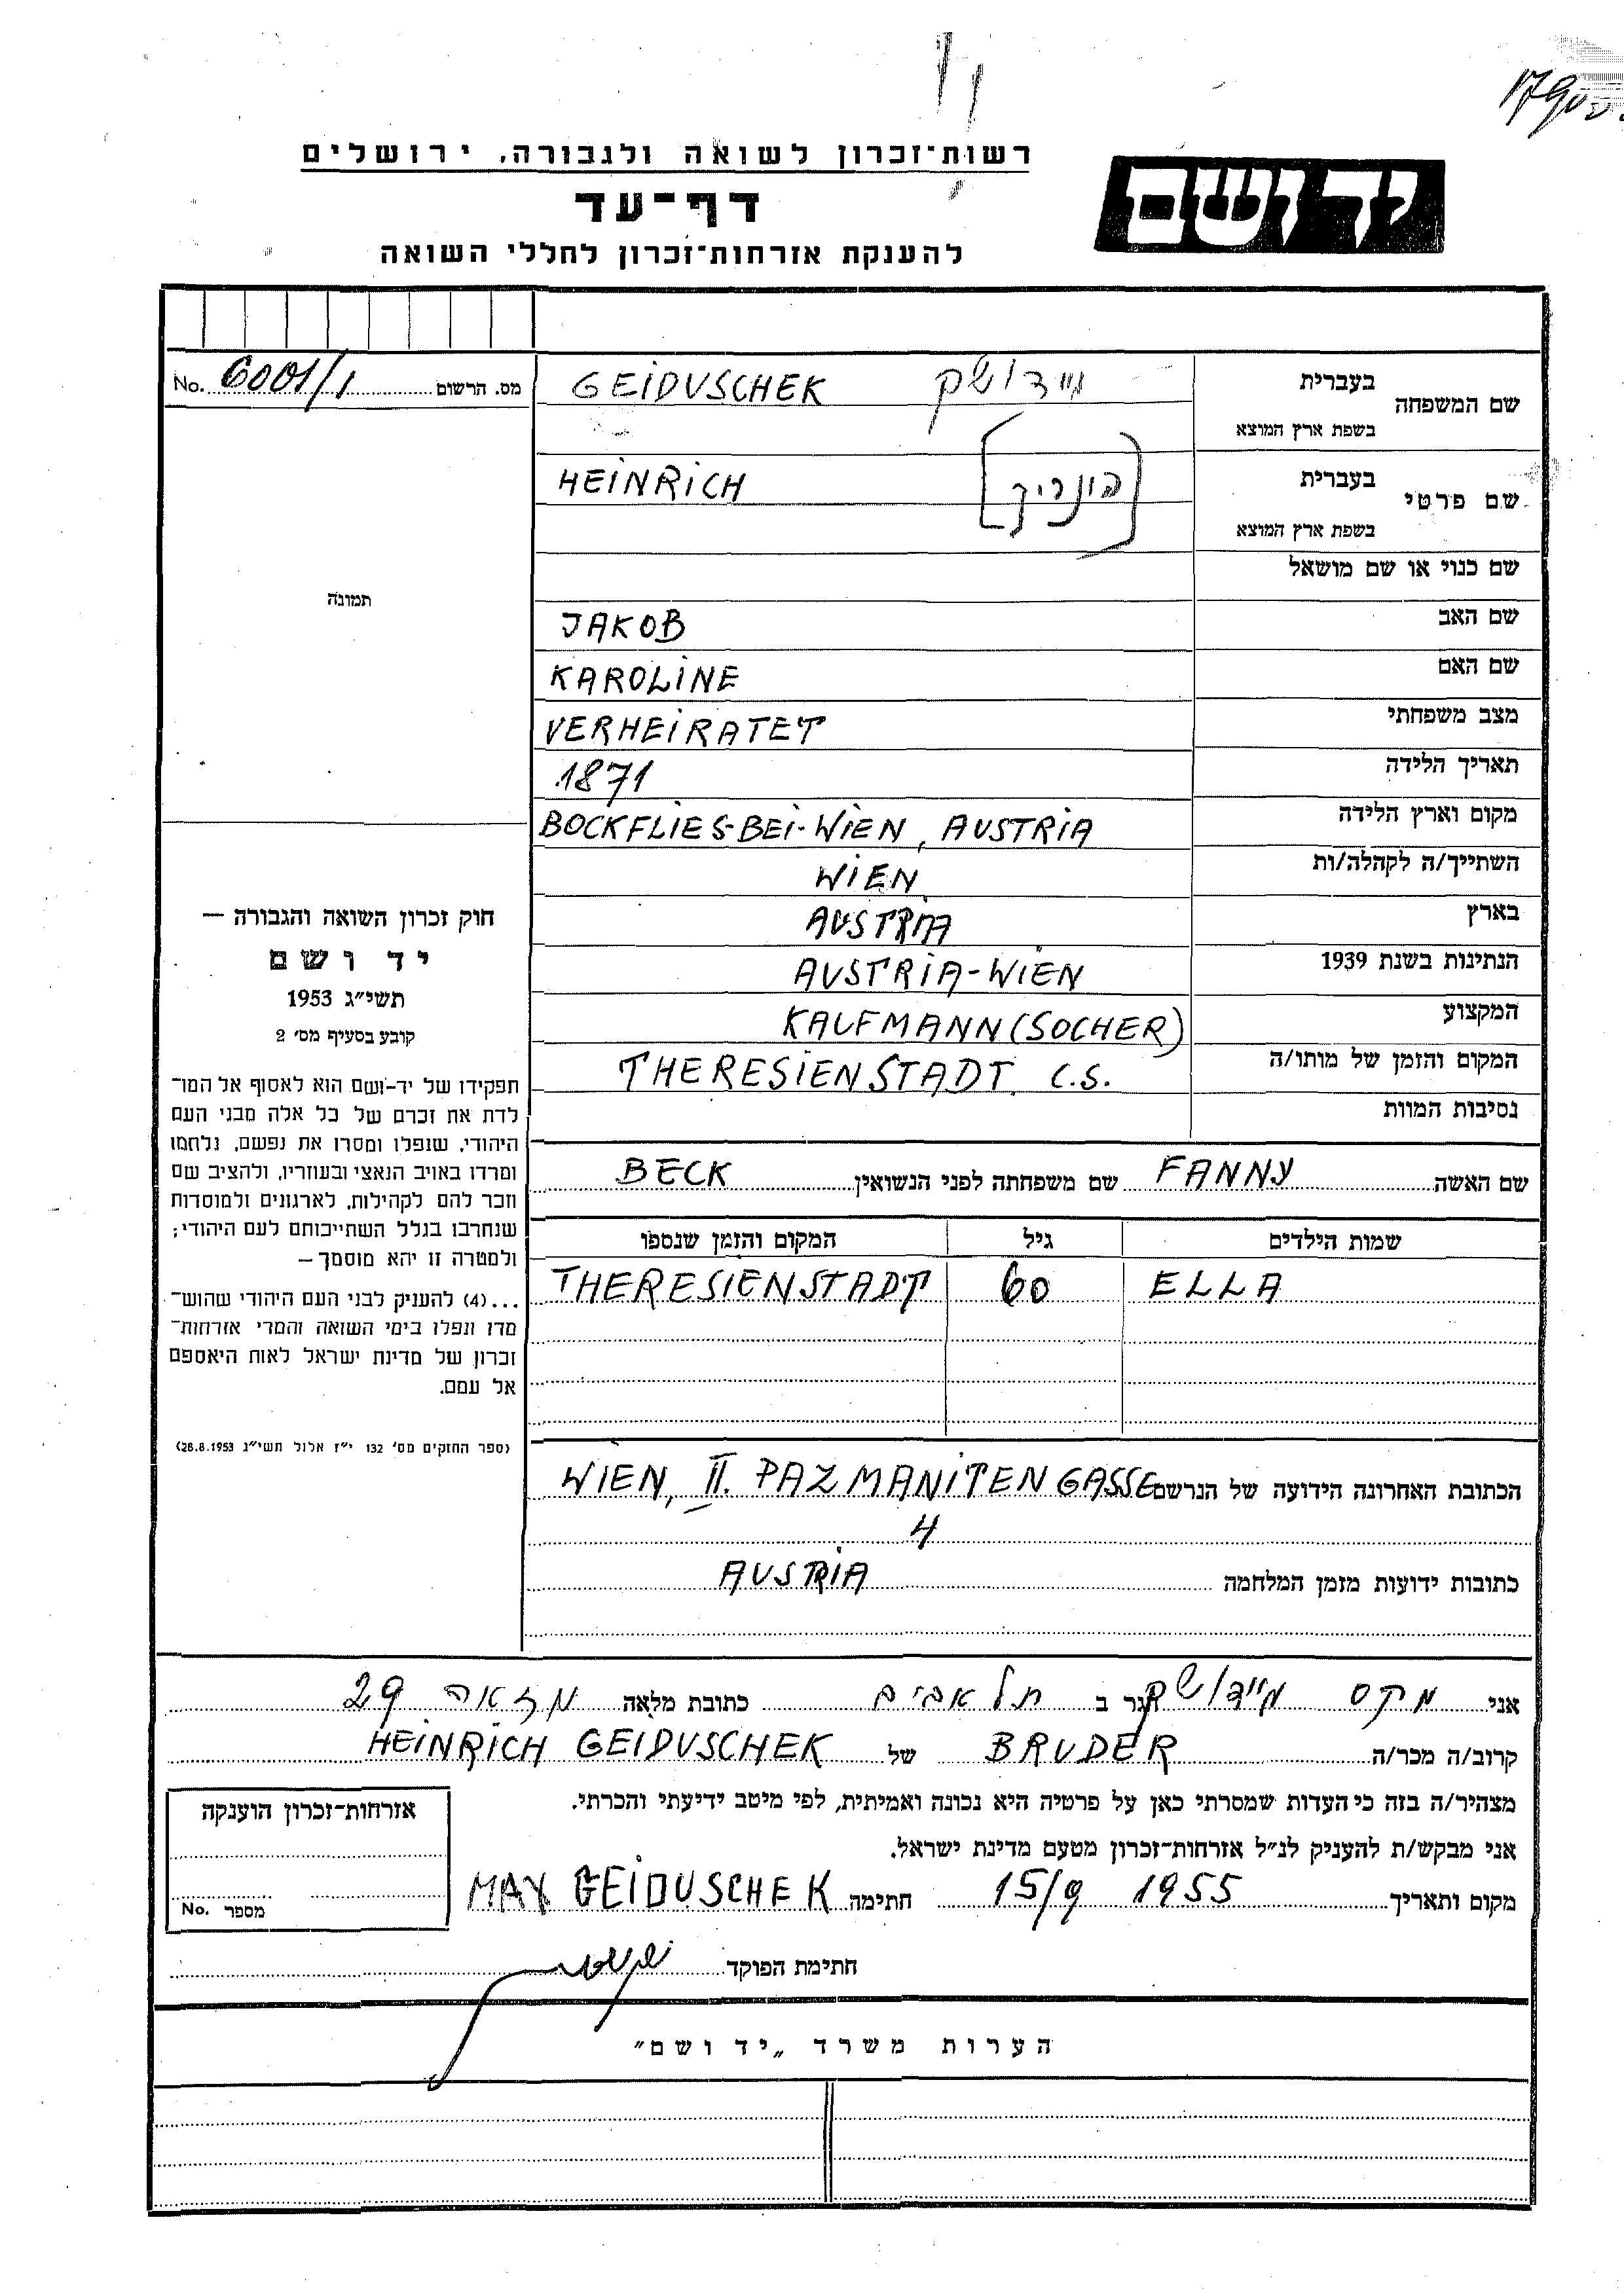 רשות־זכרון לשואה ולגבורה, ירושלים
יד ושם
דף־עד
להענקת אזרחות־זכרון לחללי השואה
No. 6001/1 מס. הרשום
שם המשפחה
בעברית גיידושק GEIDUSCHEK
בשפת ארץ המוצא
שם פרטי
בעברית [הינריך] HEINRICH
בשפת ארץ המוצא
שם כנוי או שם מושאל
תמונה
שם האב JAKOB
שם האם KAROLINE
מצב משפחתי VERHEIRATET
תאריך הלידה 1871
מקום וארץ הלידה BOCKFLIES-BEI-WIEN, AUSTRIA
השתייך/ה לקהלה/ות WIEN
בארץ AUSTRIA
הנתינות בשנת 1939 AUSTRIA-WIEN
המקצוע KAUFMANN (SOCHER)
המקום והזמן של מותו/ה THERESIENSTADT C.S.
נסיבות המוות
שם האשה FANNY שם משפחתה לפני הנשואין BECK
שמות הילדים גיל המקום והזמן שנספו
ELLA 60 THERESIENSTADT
הכתובת האחרונה הידועה של הנרשם WIEN, II. PAZMANITENGASSE
4
כתובות ידועות מזמן המלחמה AUSTRIA
חוק זכרון השואה והגבורה —
יד ושם
תשי"ג 1953
קובע בסעיף מס' 2
תפקידו של יד-ושם הוא לאסוף אל המו־
לדת את זכרם של כל אלה מבני העם
היהודי, שנפלו ומסרו את נפשם, נלחמו
ומרדו באויב הנאצי ובעוזריו, ולהציב שם
וזכר להם לקהילות, לארגונים ולמוסדות
שנחרבו בגלל השתייכותם לעם היהודי;
ולמטרה זו יהא מוסמך —
...(4) להעניק לבני העם היהודי שהוש־
מדו ונפלו בימי השואה והמרי אזרחות־
זכרון של מדינת ישראל לאות היאספם
אל עמם.
(ספר החוקים מס' 132 י"ז אלול תשי"ג 28.8.1953)
אני מקס גיידושק הגר ב תל אביב כתובת מלאה מזאה 29
קרוב/ה מכר/ה BRUDER של HEINRICH GEIDUSCHEK
מצהיר/ה בזה כי העדות שמסרתי כאן על פרטיה היא נכונה ואמיתית, לפי מיטב ידיעתי והכרתי.
אני מבקש/ת להעניק לנ"ל אזרחות־זכרון מטעם מדינת ישראל.
מקום ותאריך 15/9 1955 חתימה MAX GEIDUSCHEK
אזרחות־זכרון הוענקה
מספר No.
חתימת הפוקד
הערות משרד „יד ושם"